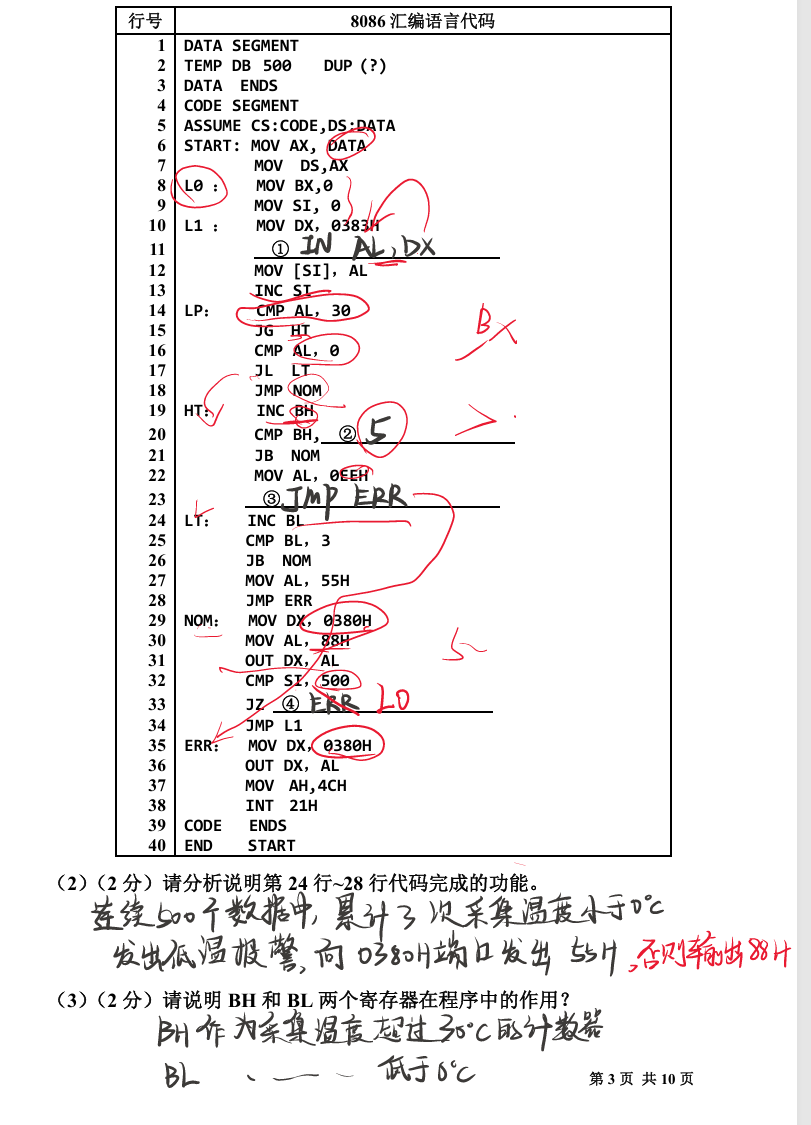 行号 8086 汇编语言代码
1 DATA SEGMENT
2 TEMP DB 500 DUP (?)
3 DATA ENDS
4 CODE SEGMENT
5 ASSUME CS:CODE,DS:DATA
6 START: MOV AX, DATA
7 MOV DS,AX
8 L0 : MOV BX,0
9 MOV SI, 0
10 L1 : MOV DX, 0383H
11 ① IN AL, DX
12 MOV [SI], AL
13 INC SI
14 LP: CMP AL, 30
15 JG HT
16 CMP AL, 0
17 JL LT
18 JMP NOM
19 HT: INC BH
20 CMP BH, ② 5
21 JB NOM
22 MOV AL, 0EEH
23 ③ JMP ERR
24 LT: INC BL
25 CMP BL, 3
26 JB NOM
27 MOV AL, 55H
28 JMP ERR
29 NOM: MOV DX, 0380H
30 MOV AL, 88H
31 OUT DX, AL
32 CMP SI, 500
33 JZ ④ ERR L0
34 JMP L1
35 ERR: MOV DX, 0380H
36 OUT DX, AL
37 MOV AH,4CH
38 INT 21H
39 CODE ENDS
40 END START
BX
（2）（2 分）请分析说明第 24 行~28 行代码完成的功能。
连续500个数据中，累计3次采集温度小于0℃
发出低温报警，向0380H端口发出 55H，否则输出88H
（3）（2 分）请说明 BH 和 BL 两个寄存器在程序中的作用？
BH作为采集温度超过30℃的计数器
BL 低于0℃
第 3 页 共 10 页